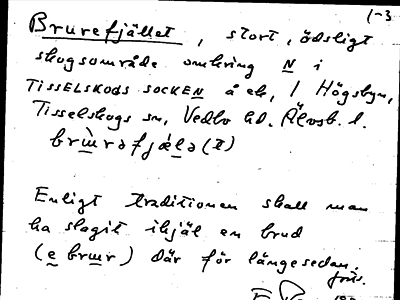 1-3
Brurefjället, stort, ödsligt
skogsområde omkring N i
TISSELSKOGS SOCKEN å ek. 1 Högsbyn,
Tisselskogs sn, Vedbo hd. Älvsb. l.
Enligt traditionen skall man
ha slagit ihjäl en brud
(e brɯr) där för länge sedan.